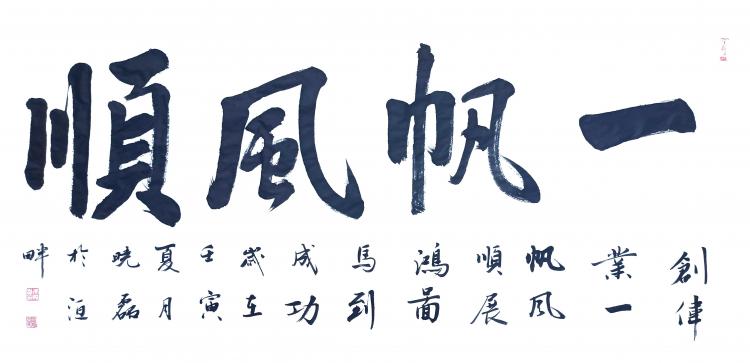 一帆風順
創偉
業一
帆风
順展
鴻圖
馬到
成功
歲在
壬寅
夏月
曉磊
於洹
畔